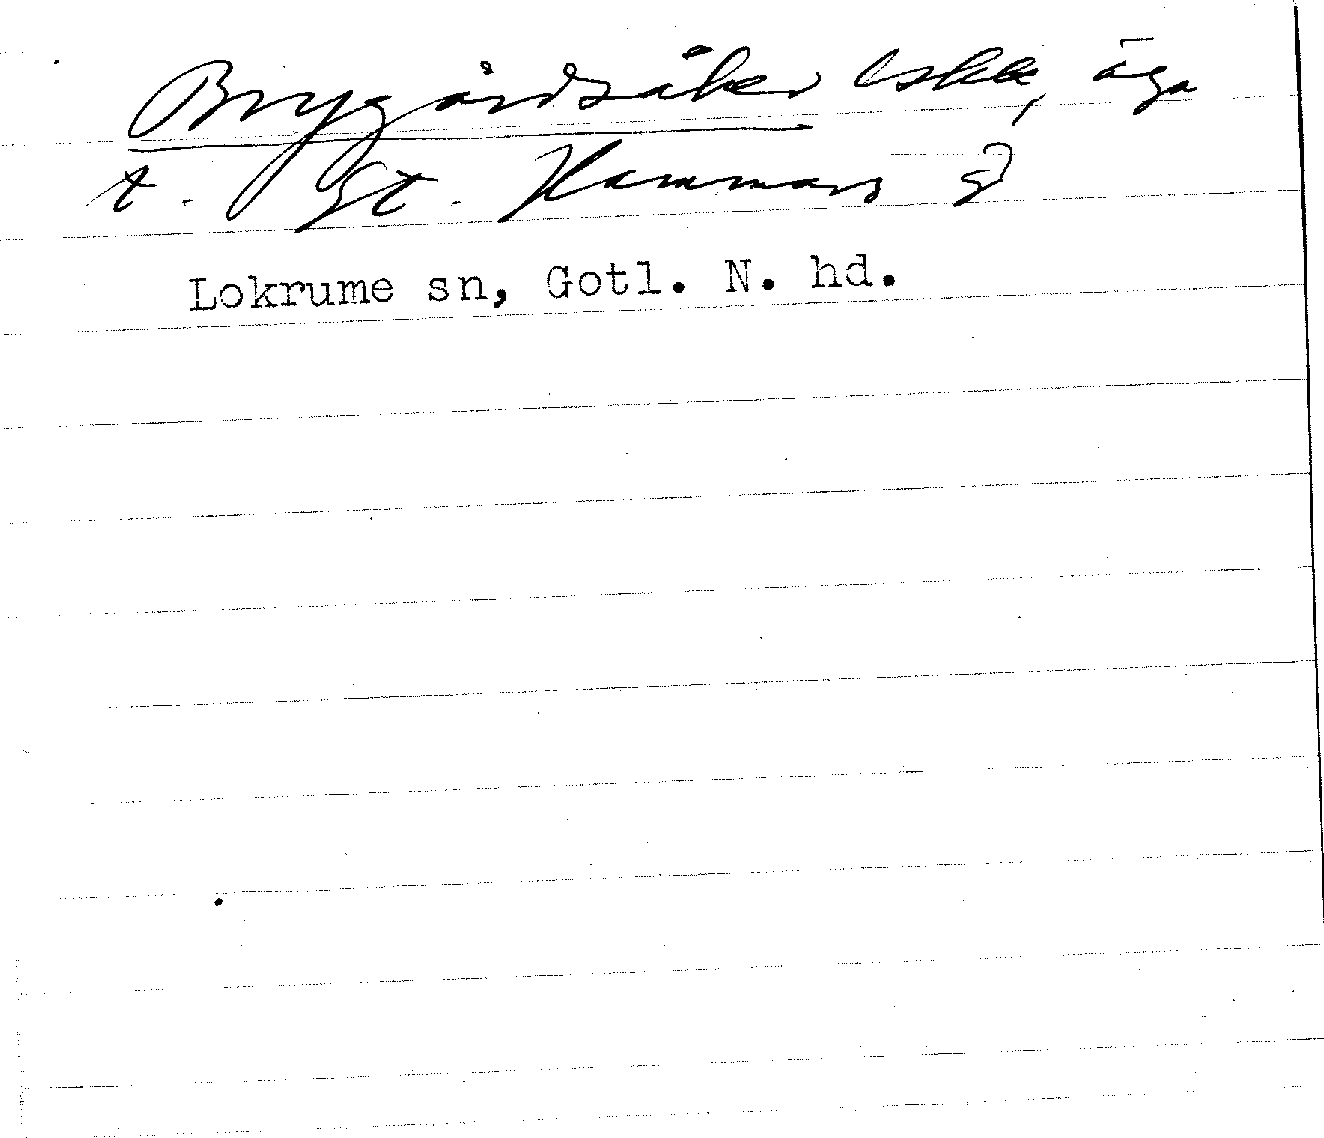 Brygårdsåker lskr, äga
t. St. Hammars 2
Lokrume sn, Gotl. N. hd.